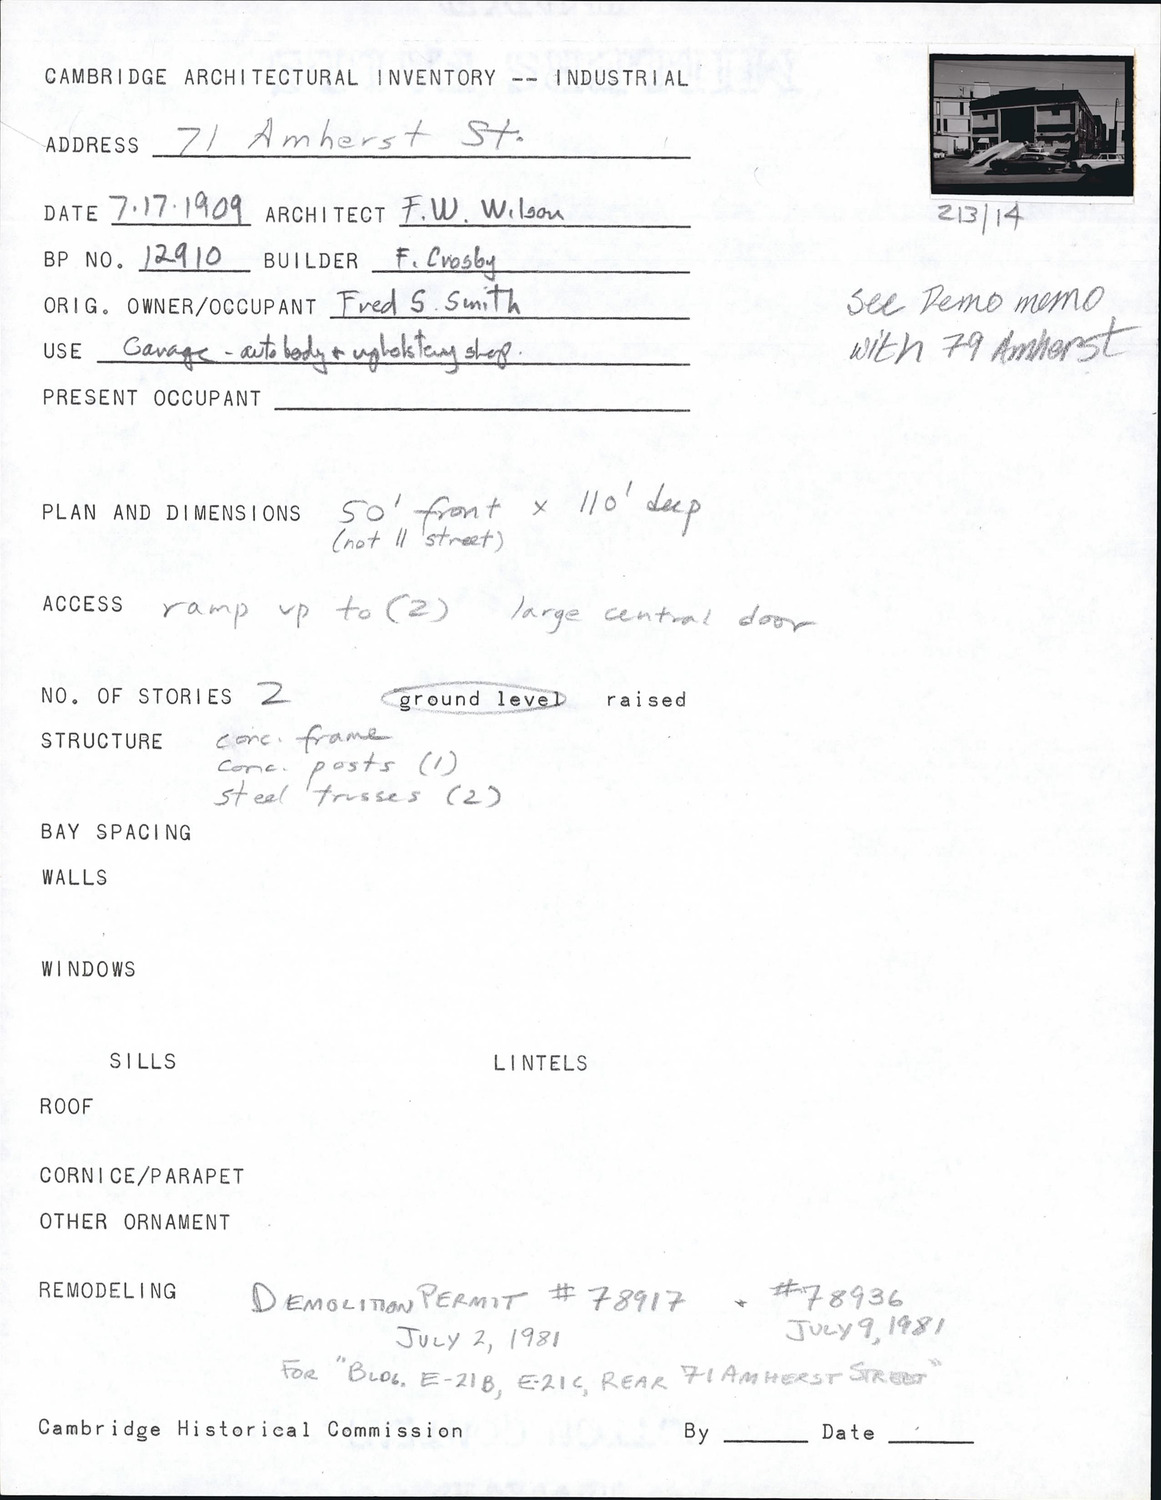 CAMBRIDGE ARCHITECTURAL INVENTORY -- INDUSTRIAL
ADDRESS 71 Amherst St.
213/14
DATE 7·17·1909 ARCHITECT F.W. Wilson
BP NO. 12910 BUILDER F. Crosby
ORIG. OWNER/OCCUPANT Fred S. Smith
USE Garage - auto body + upholstery shop.
PRESENT OCCUPANT
see Demo memo
with 79 Amherst
PLAN AND DIMENSIONS 50' front x 110' deep
(not || street)
ACCESS ramp up to (2) large central door
NO. OF STORIES 2 ground level raised
STRUCTURE conc. frame
conc. posts (1)
steel trusses (2)
BAY SPACING
WALLS
WINDOWS
SILLS LINTELS
ROOF
CORNICE/PARAPET
OTHER ORNAMENT
REMODELING DEMOLITION PERMIT #78917 + #78936
JULY 2, 1981 JULY 9, 1981
FOR "BLDG. E-21B, E-21C, REAR 71 AMHERST STREET"
Cambridge Historical Commission By Date